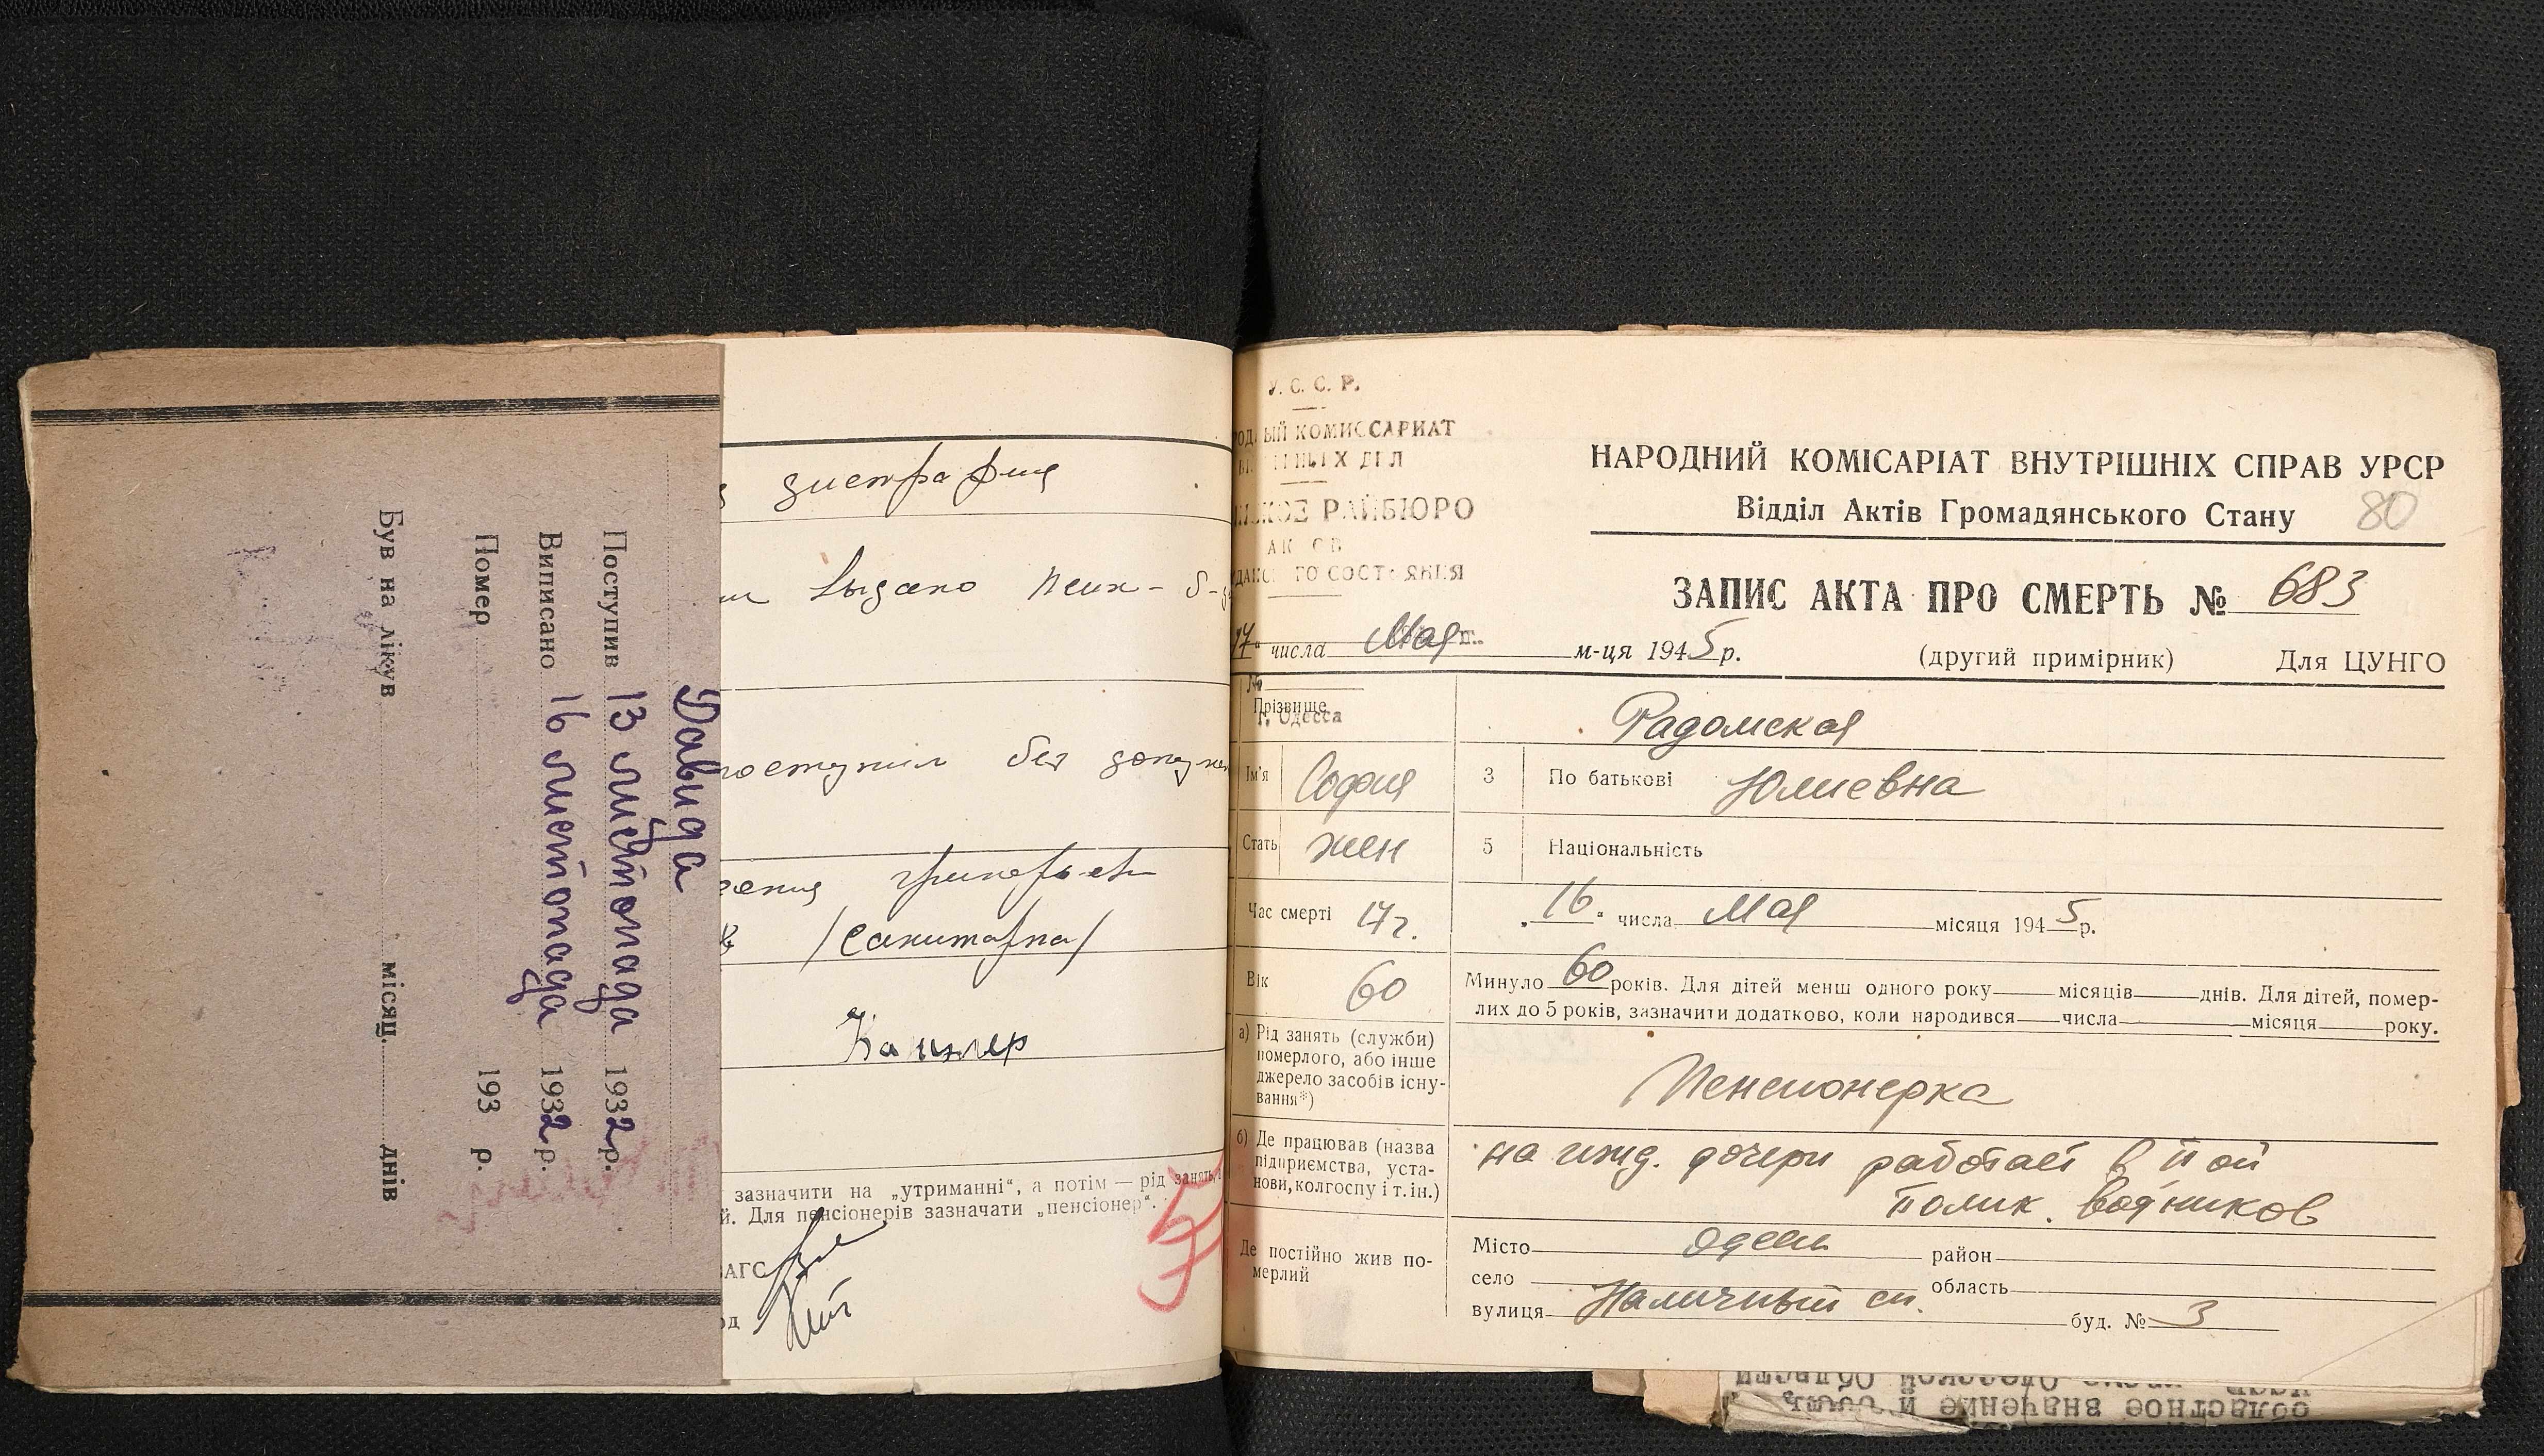 Давида
Поступив 13 листопада 1932 р.
Виписано 16 листопада 1932 р.
Помер 193 р.
Був на лікув місяц. днів
дистрофия
выдано псих-б-
поступил без докуме
/санитарка/
зазначити на „утриманні“, а потім — рід занять,
й. Для пенсіонерів зазначати „пенсіонер“.
АГС
од
У. С. С. Р.
РОДНЫЙ КОМИССАРИАТ
ВНУТРЕННИХ ДЕЛ
СКОЕ РАЙБЮРО
АКТОВ
ДАНСКОГО СОСТОЯНИЯ
№
г. Одесса
НАРОДНИЙ КОМІСАРІАТ ВНУТРІШНІХ СПРАВ УРСР
Відділ Актів Громадянського Стану 80
ЗАПИС АКТА ПРО СМЕРТЬ № 683
17 “ числа Мая м-ця 1945 р. (другий примірник) Для ЦУНГО
Прізвище Радомская
Ім'я София 3 По батькові Юлиевна
Стать жен 5 Національність
Час смерті 17 г. „16“ числа Мая місяця 1945 р.
Вік 60 Минуло 60 років. Для дітей менш одного року місяців днів. Для дітей, помер-
лих до 5 років, зазначити додатково, коли народився числа місяця року.
а) Рід занять (служби)
померлого, або інше
джерело засобів існу-
вання*)
Пенсионерка
б) Де працював (назва
підприємства, уста-
нови, колгоспу і т. ін.)
на ижд. дочери работает в
полик. водников
Де постійно жив по-
мерлий
Місто Одесса район
село область
вулиця Наличный сп. буд. № 3
областное значение и
Одесской области